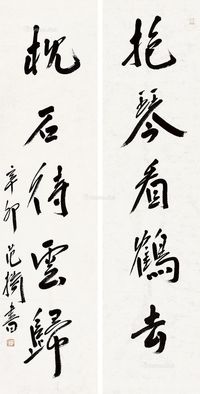 抱琴看鶴去
枕石待雲歸
辛卯 范揚書